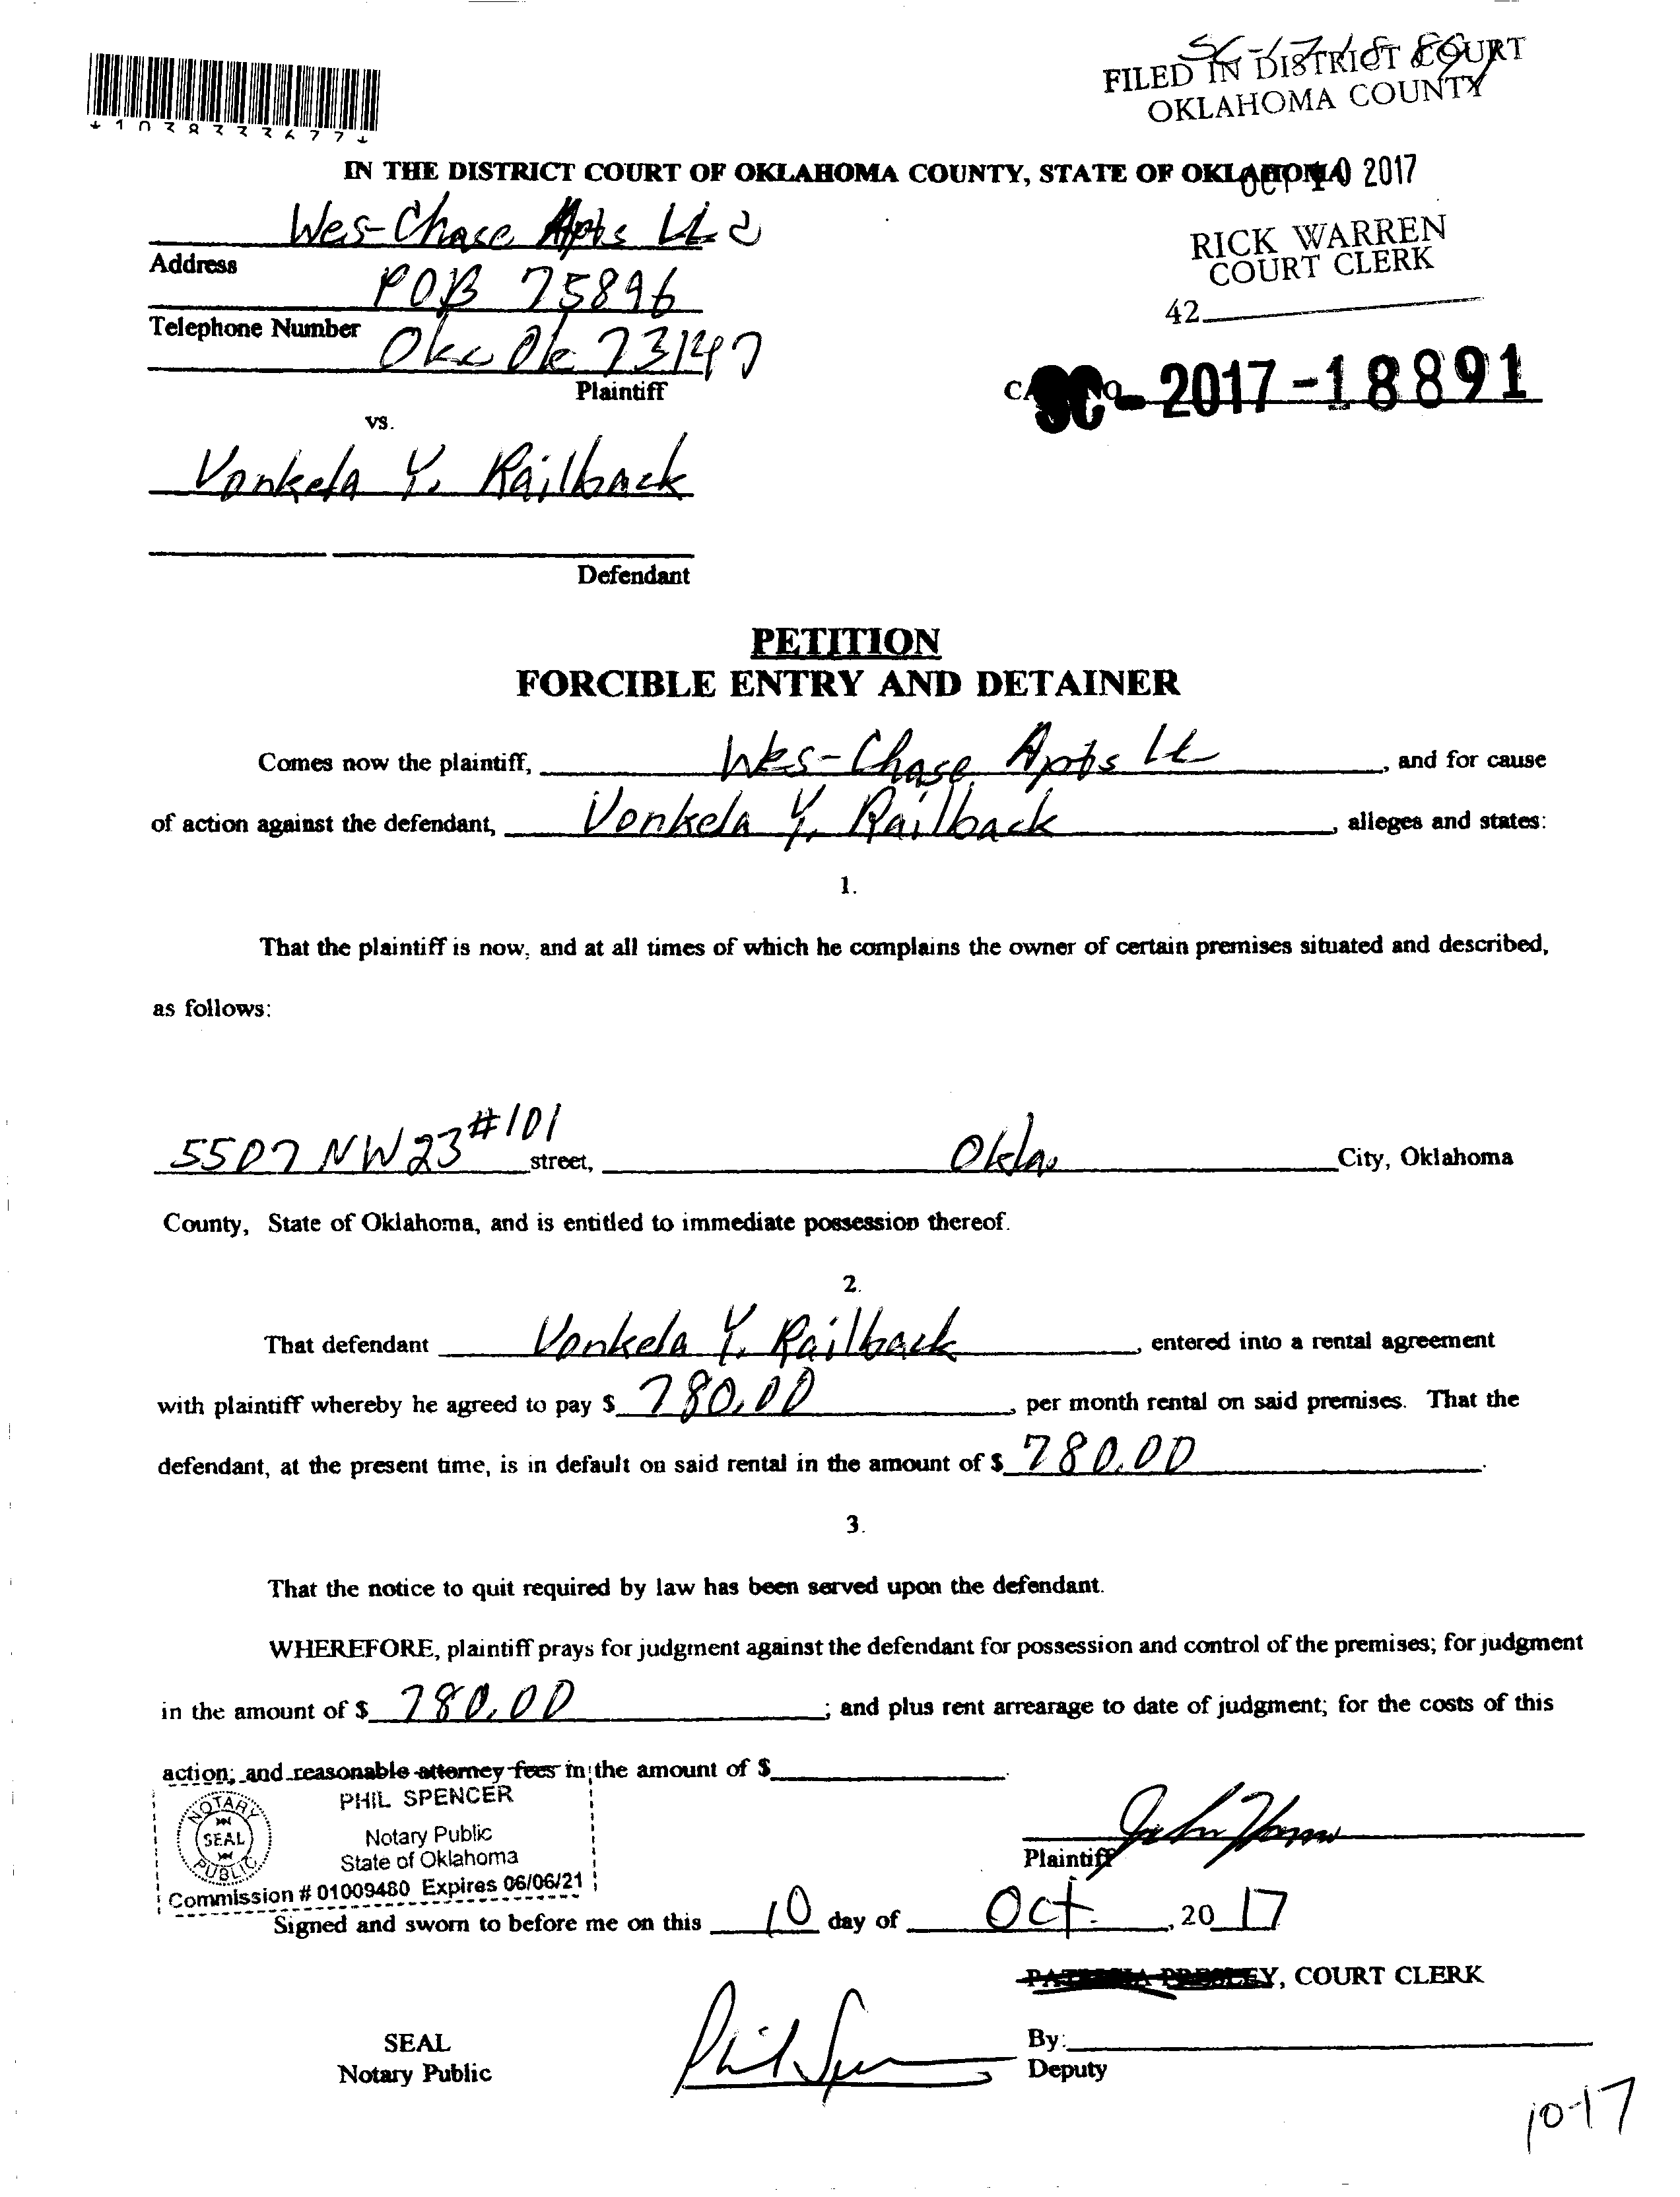 SC-17-18891
FILED IN DISTRICT COURT
OKLAHOMA COUNTY
*1038333677*
IN THE DISTRICT COURT OF OKLAHOMA COUNTY, STATE OF OKLAHOMA
OCT 10 2017
Wes-Chase Apts LLC
RICK WARREN
COURT CLERK
Address
POB 75896
42
Telephone Number
Okc Ok 73147
Plaintiff
SC - 2017 - 18891
vs.
Vonkela Y. Railback
Defendant
PETITION
FORCIBLE ENTRY AND DETAINER
Comes now the plaintiff, Wes-Chase Apts LLC, and for cause
of action against the defendant, Vonkela Y. Railback, alleges and states:
1.
That the plaintiff is now, and at all times of which he complains the owner of certain premises situated and described,
as follows:
5507 NW 23 #101 street, Okla. City, Oklahoma
County, State of Oklahoma, and is entitled to immediate possession thereof.
2.
That defendant Vonkela Y. Railback, entered into a rental agreement
with plaintiff whereby he agreed to pay $ 780.00, per month rental on said premises. That the
defendant, at the present time, is in default on said rental in the amount of $ 780.00.
3.
That the notice to quit required by law has been served upon the defendant.
WHEREFORE, plaintiff prays for judgment against the defendant for possession and control of the premises; for judgment
in the amount of $ 780.00; and plus rent arrearage to date of judgment; for the costs of this
action; and reasonable attorney fees in the amount of $
PHIL SPENCER
NOTARY SEAL PUBLIC
Notary Public
State of Oklahoma
Commission # 01009480 Expires 06/06/21
Plaintiff
Signed and sworn to before me on this 10 day of Oct., 20 17
PATRICIA PRESLEY, COURT CLERK
SEAL
Notary Public
Phil Spencer
By:
Deputy
10-17